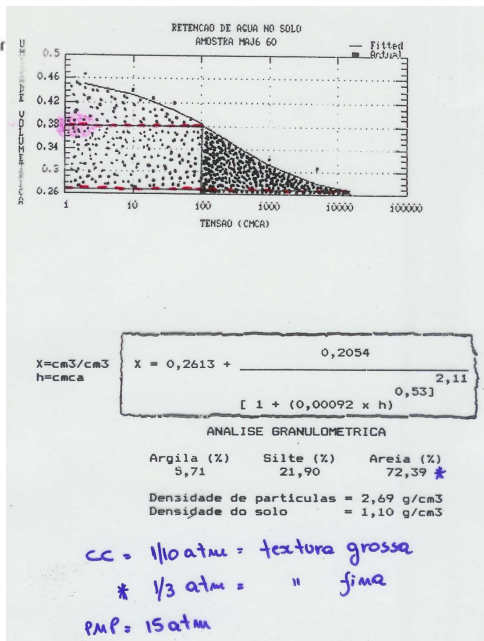 RETENCAO DE AGUA NO SOLO
AMOSTRA MAJ6 60
Fitted
Actual
UMIDADE VOLUMETRICA
0.5
0.46
0.42
0.38
0.34
0.3
0.26
1
10
100
1000
10000
100000
TENSAO (CMCA)
X=cm3/cm3
h=cmca
X = 0,2613 +
0,2054
2,11
0,53]
[ 1 + (0,00092 x h)
ANALISE GRANULOMETRICA
Argila (%) Silte (%) Areia (%)
5,71 21,90 72,39 *
Densidade de particulas = 2,69 g/cm3
Densidade do solo = 1,10 g/cm3
CC = 1/10 atm = textura grossa
* 1/3 atm = " fina
PMP = 15 atm